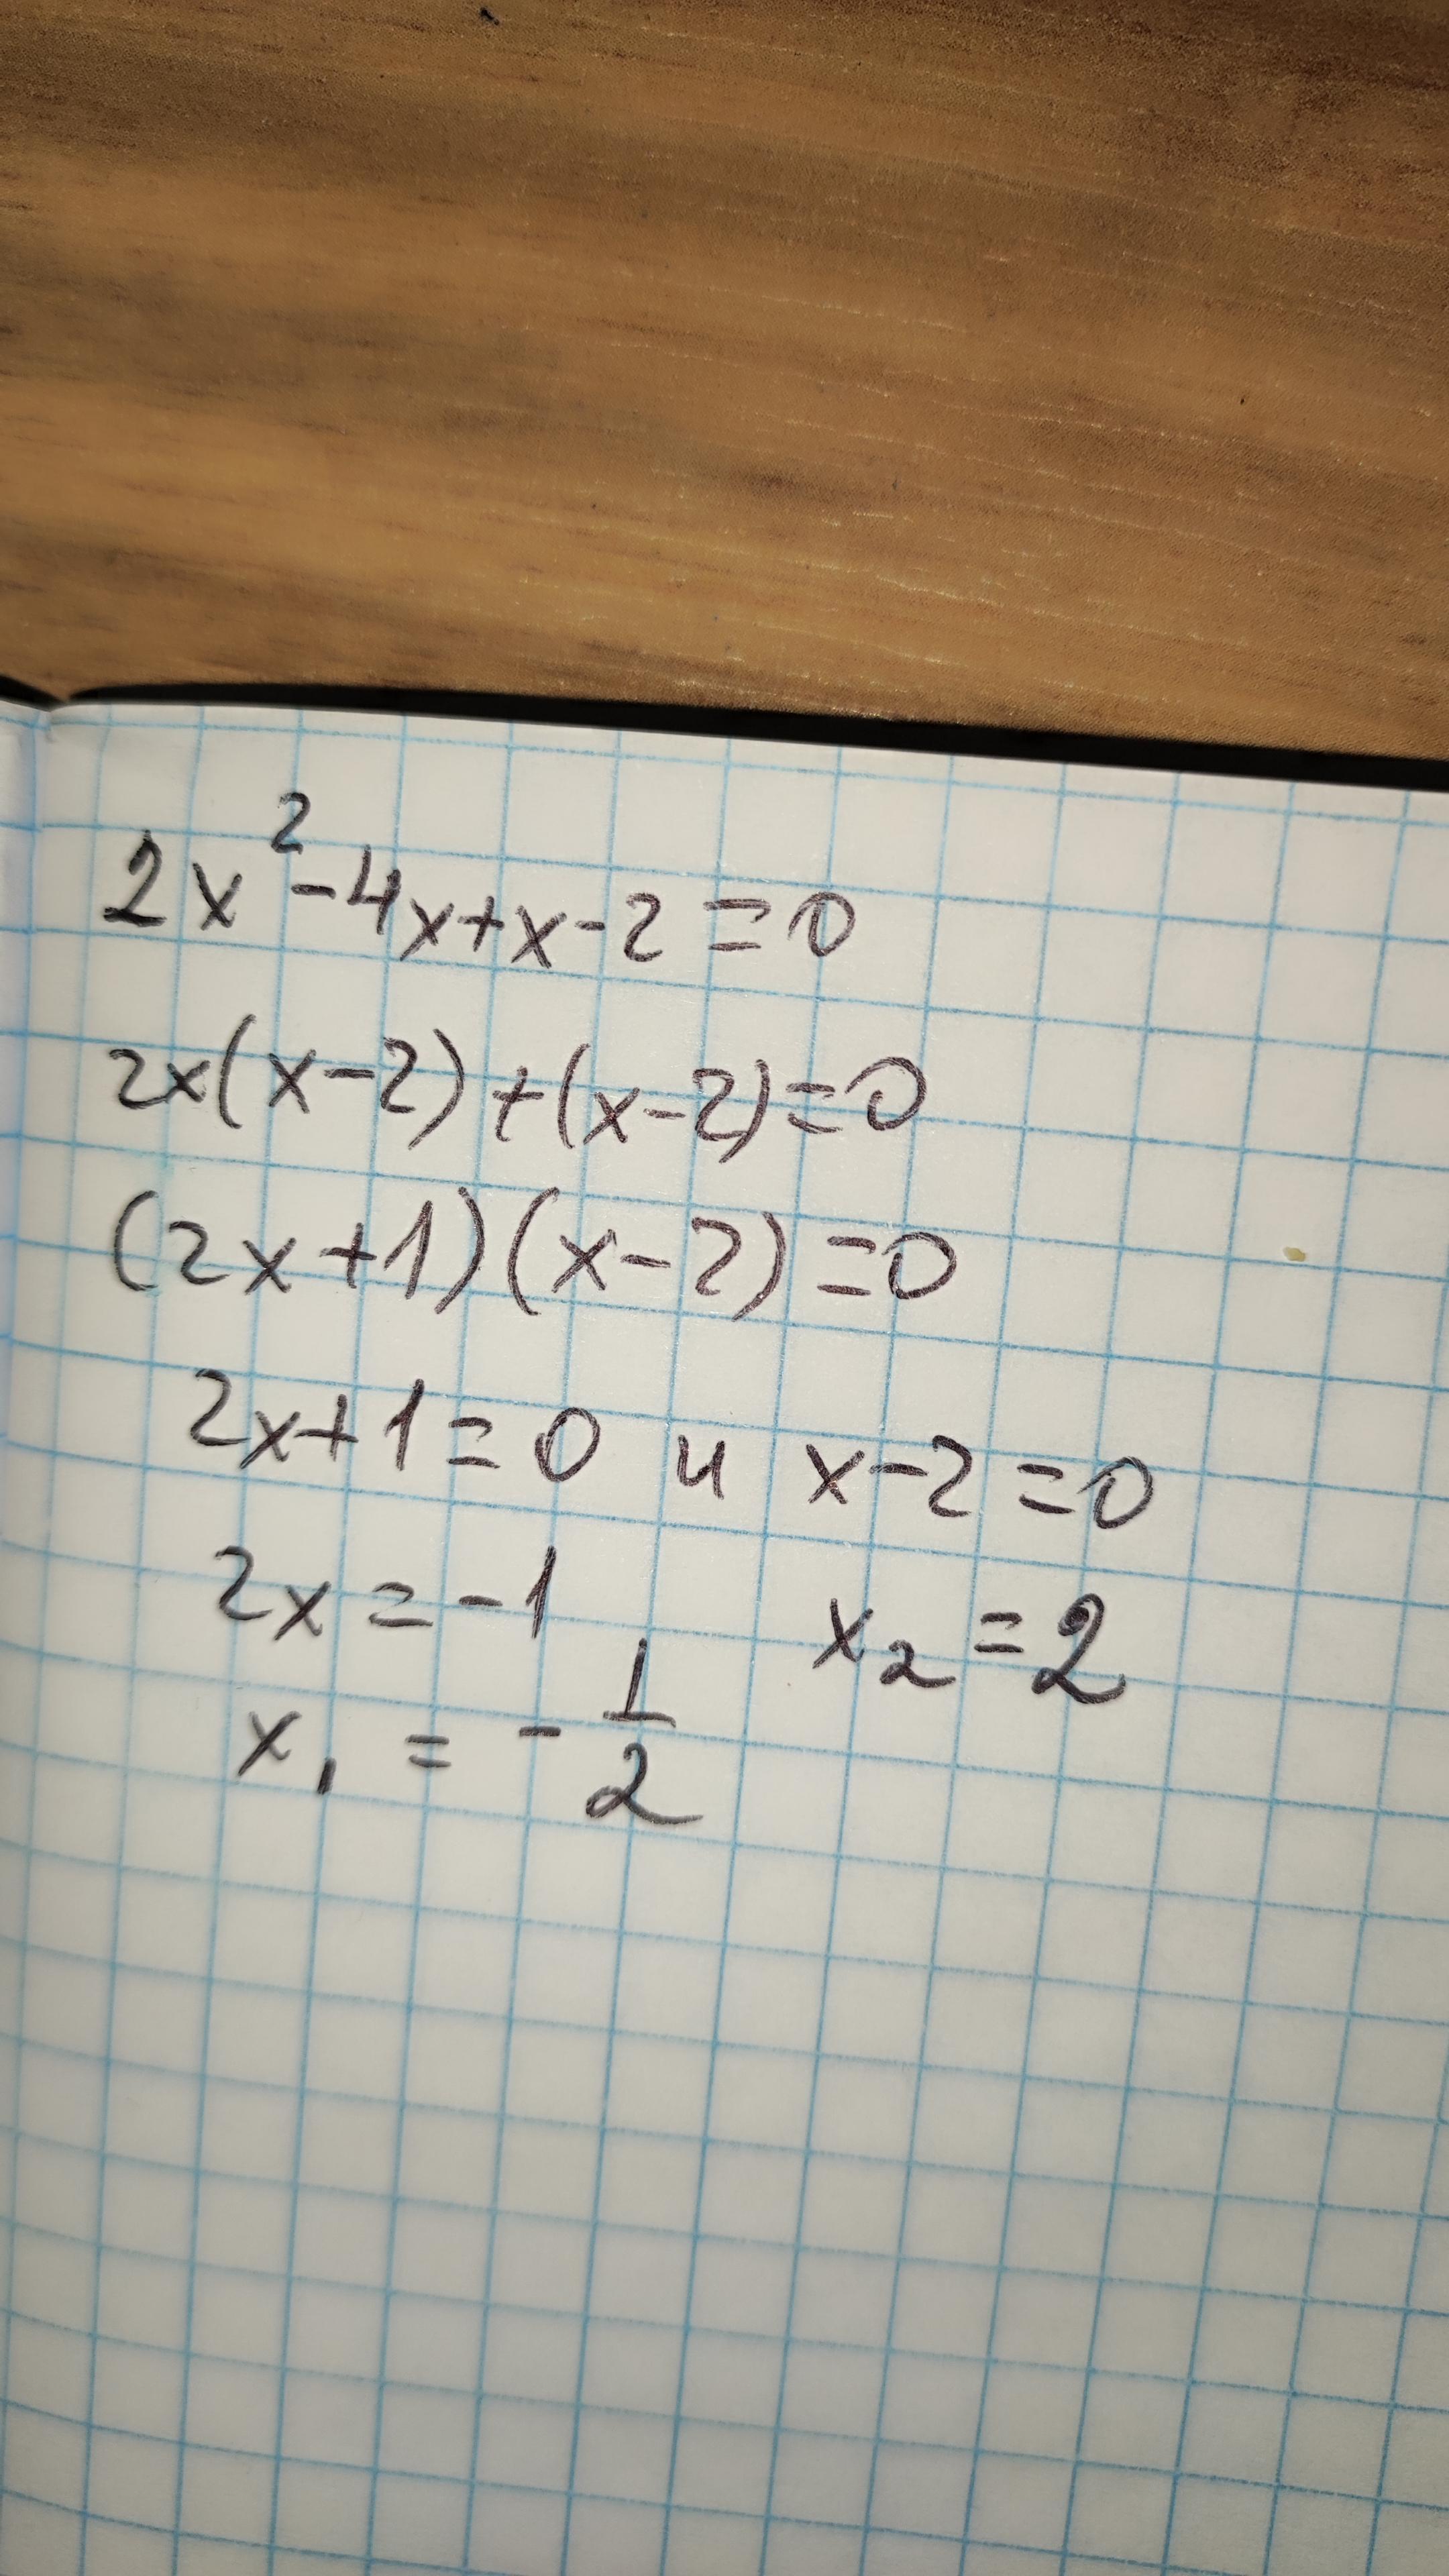 2x²-4x+x-2=0
2x(x-2)+(x-2)=0
(2x+1)(x-2)=0
2x+1=0 и x-2=0
2x=-1
x₂=2
x₁=-1/2